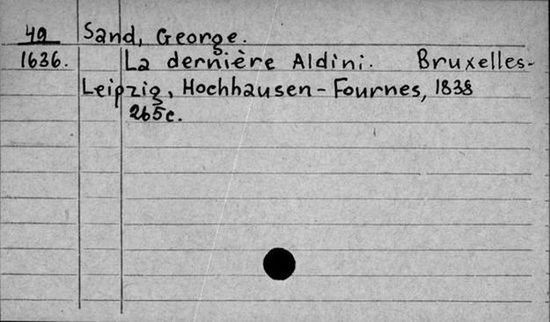 49 Sand, George.
1636. La dernière Aldini. Bruxelles-
Leipzig, Hochhausen-Fournes, 1838
265c.